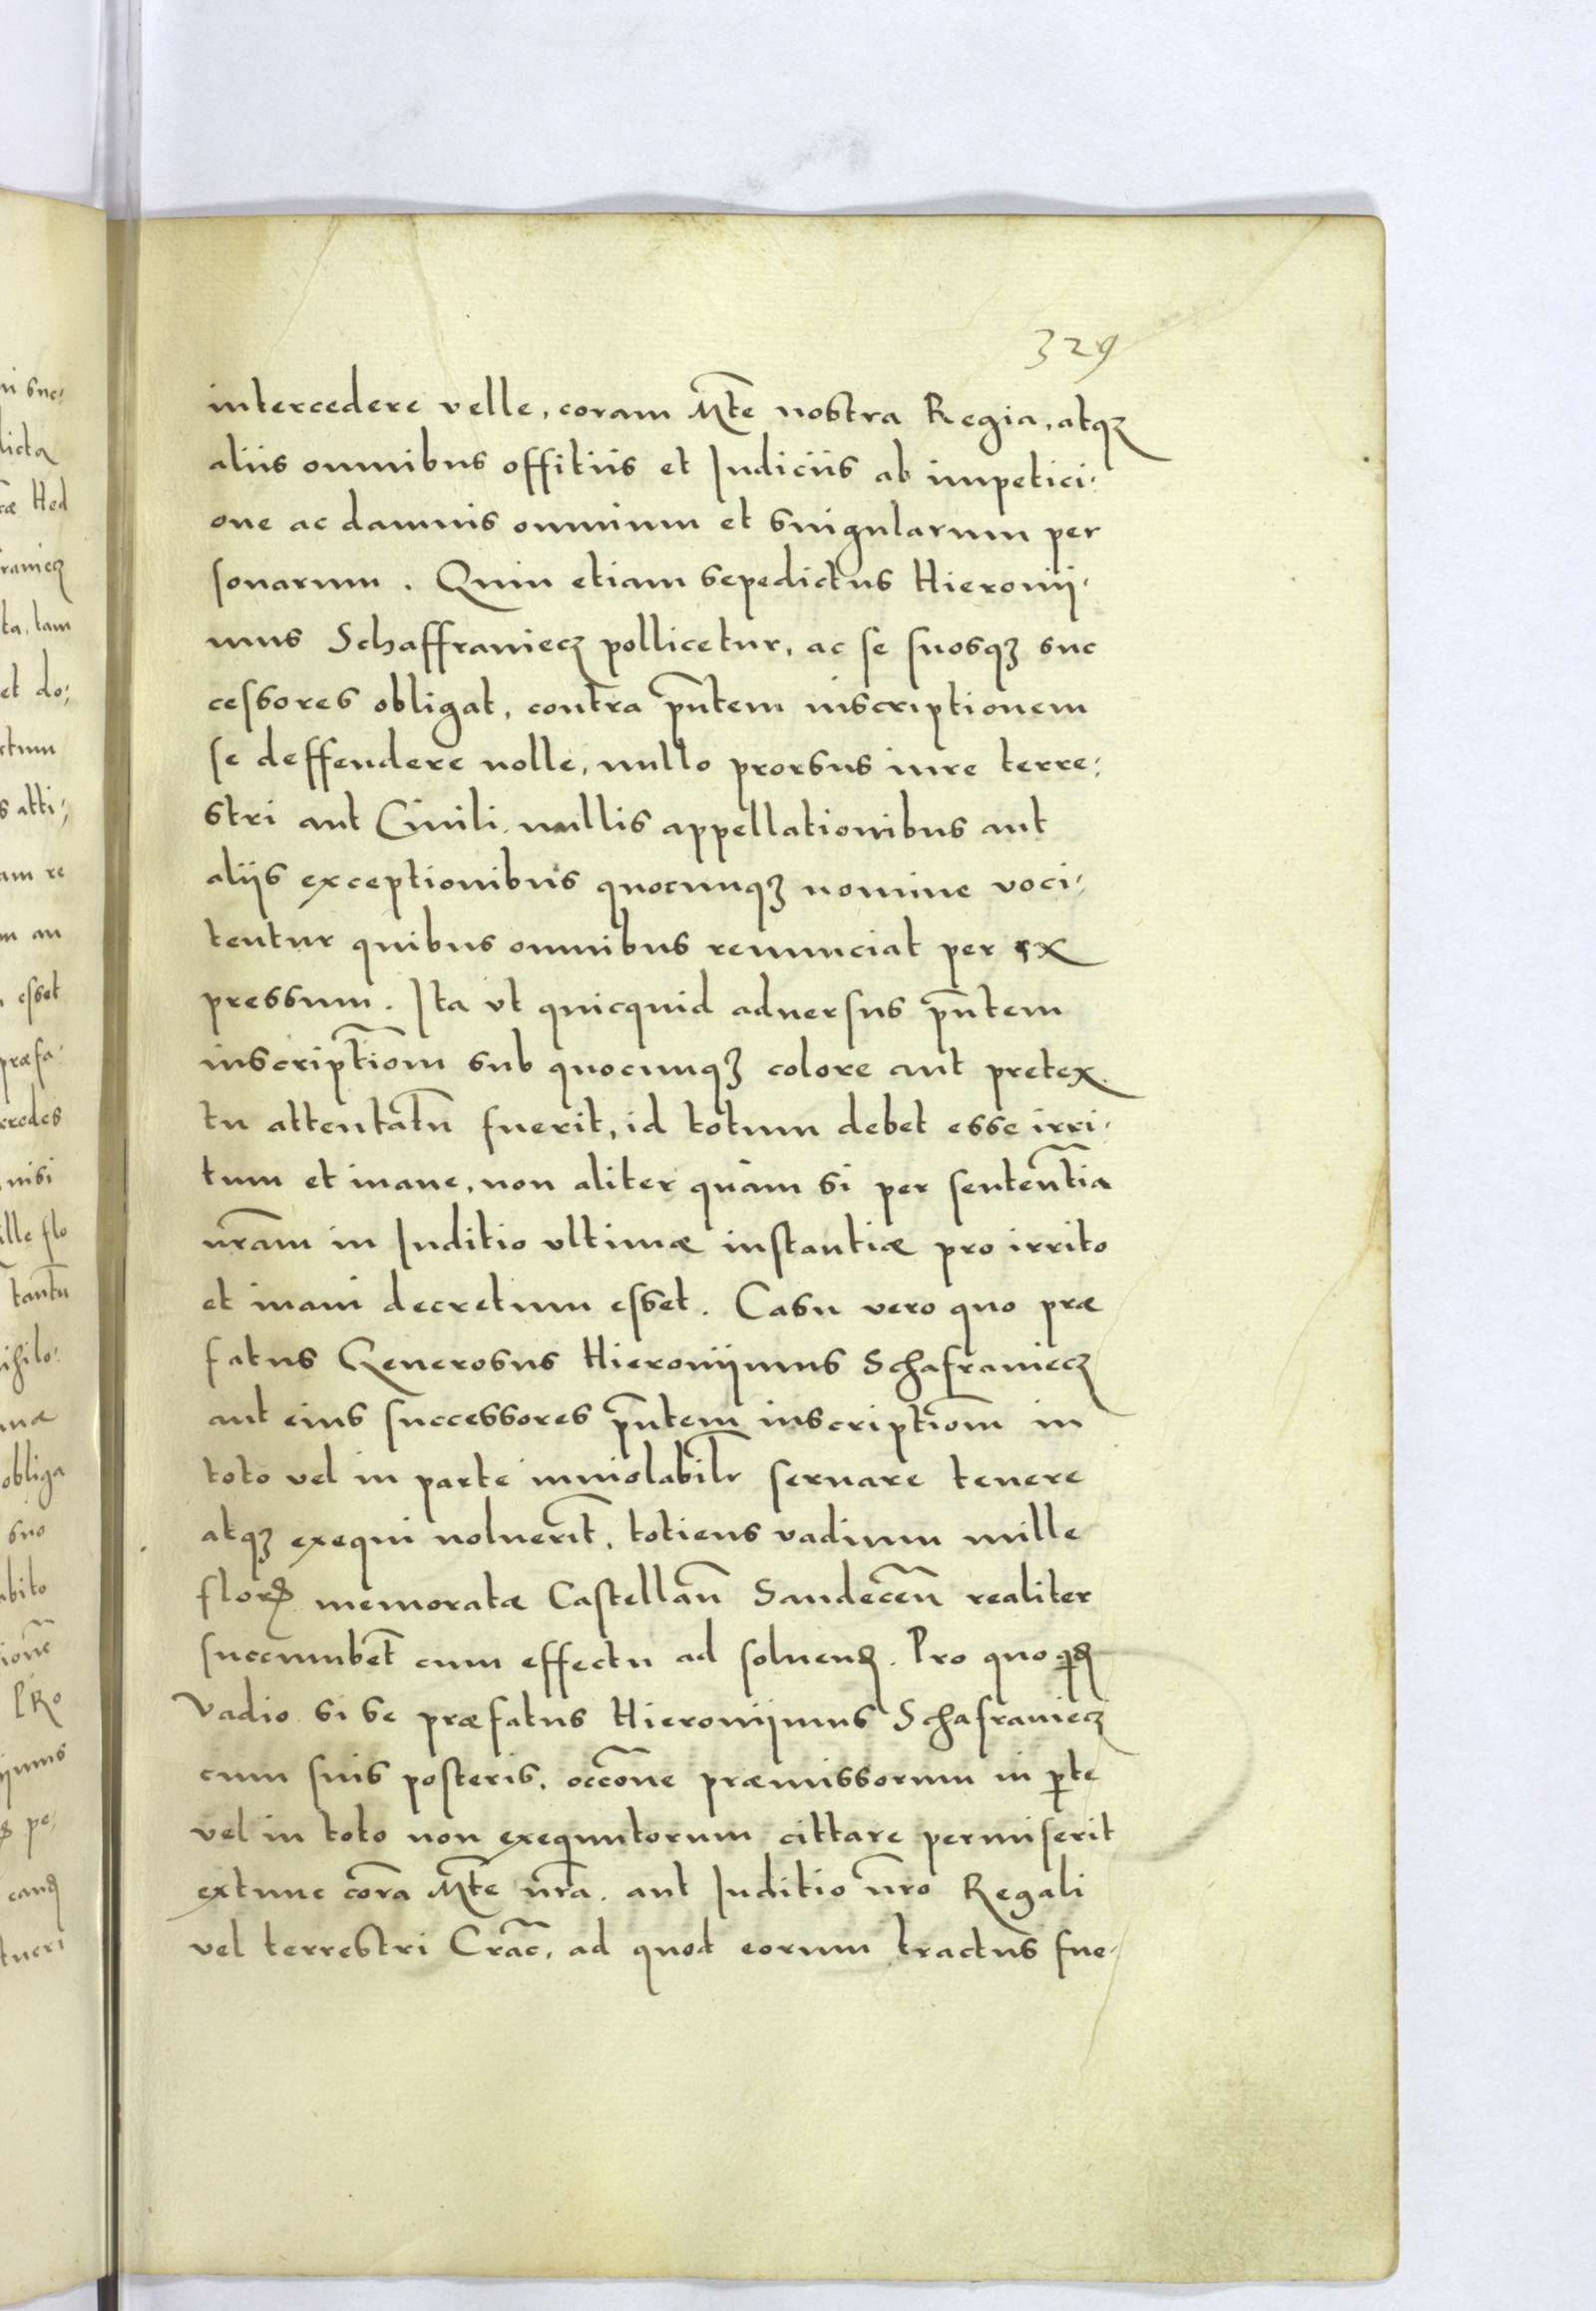 329
intercedere velle, coram Mte nostra Regia, atqz
aliis omnibus offitiis et Judiciis ab impetici-
one ac damnis omnium et singularum per
sonarum. Quin etiam sepedictus Hieronij-
mus Schaffraniecz pollicetur, ac se suosqz suc
cessores obligat, contra pn̄tem inscriptionem
se deffendere nolle, nullo prorsus iure terre-
stri aut Ciuili, nullis appellationibus aut
alijs exceptionibus quocunqz nomine voci-
tentur quibus omnibus renunciat per ex
pressum. Ita vt quicquid aduersus pn̄tem
inscriptiōm sub quocunqz colore aut pretex
tu attentatū fuerit, id totum debet esse irri-
tum et inane, non aliter quàm si per sententiā
nr̄am in Juditio vltimæ instantiæ pro irrito
et inani decretum esset. Casu vero quo præ
fatus Generosus Hieronijmus Schafraniecz
aut eius successores pn̄tem inscriptiōm in
toto vel in parte inuiolabilr̄ seruare tenere
atqz exequi noluerīt, totiens vadium mille
flor. memoratæ Castellan̄ Sandecen̄ realiter
succumbet̄ cum effectu ad soluend. Pro quo qd
vadio si se præfatus Hieronijmus Schafraniecz
cum suis posteris, occōne præmissorum in pte
vel in toto non exequutorum cittare permiserit
extunc corā Mte nr̄a. aut Juditio nr̄o Regali
vel terrestri Crac̄, ad quod eorum tractus fue-